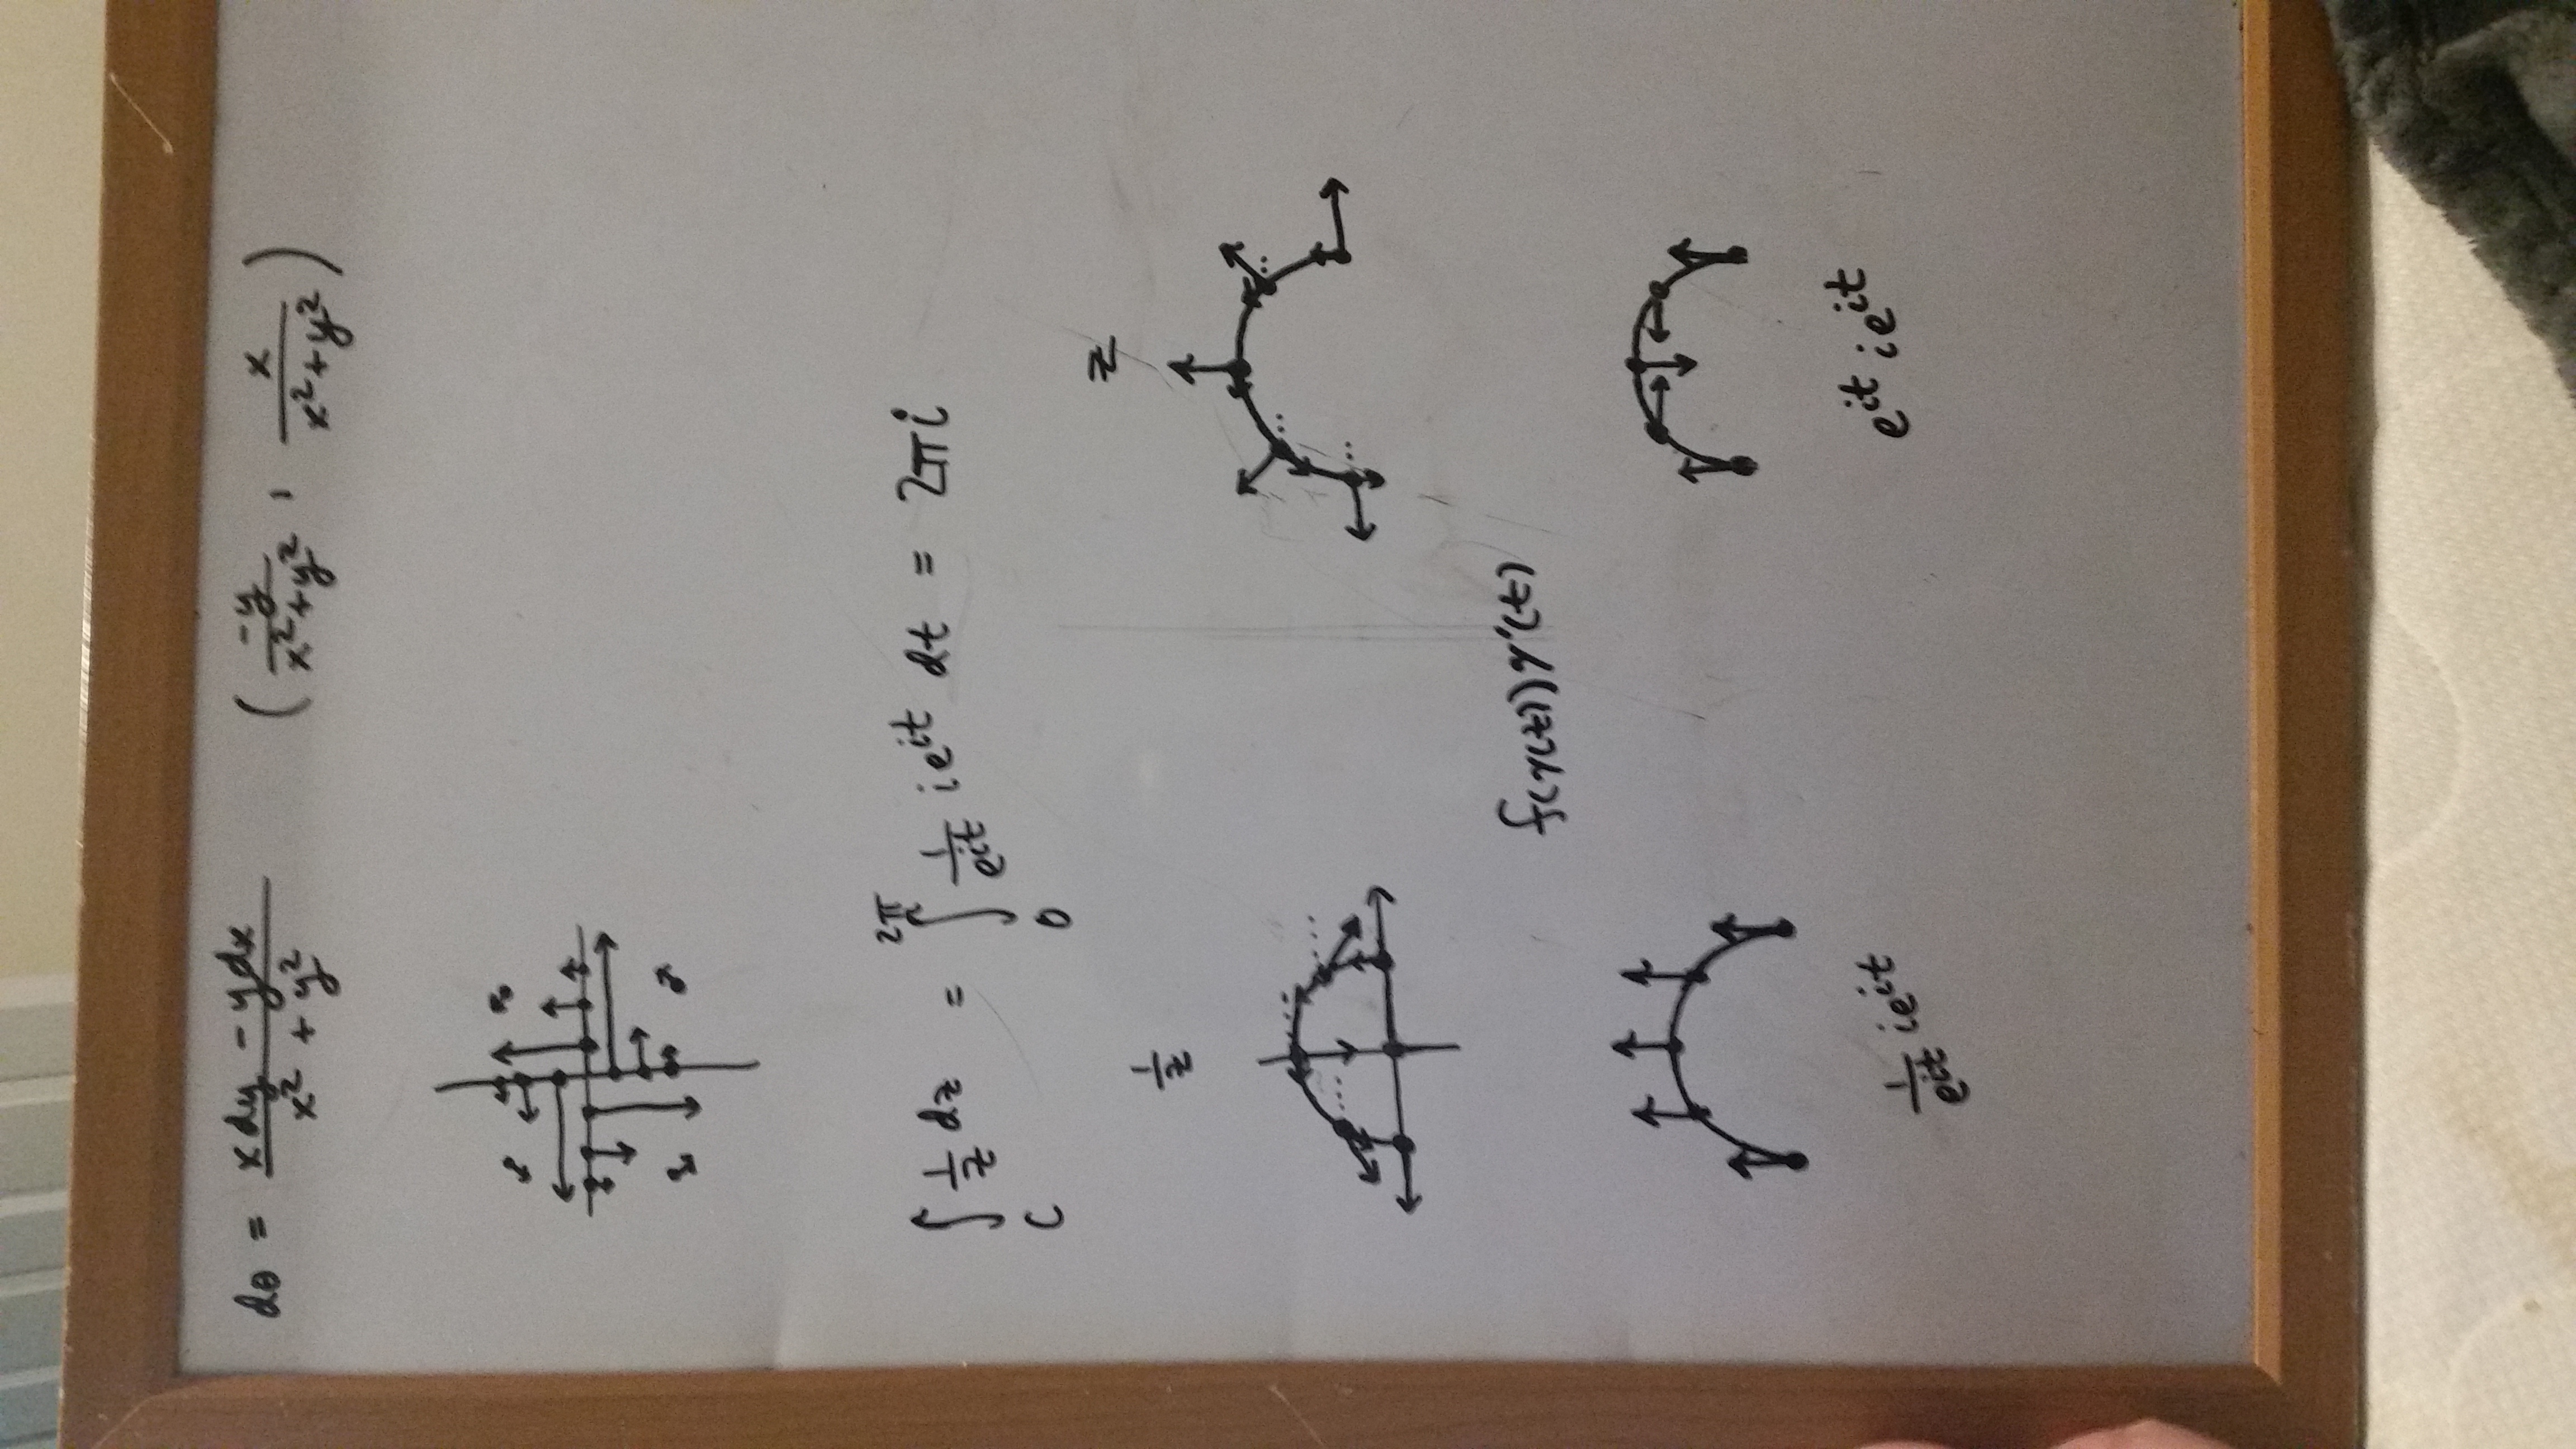 dθ = (x dy - y dx)/(x² + y²) (-y/(x²+y²), x/(x²+y²))
∫_C 1/z dz = ∫_0^{2π} 1/e^{it} i e^{it} dt = 2πi
1/z z
f(γ(t))γ'(t)
1/e^{it} i e^{it} e^{it} i e^{it}